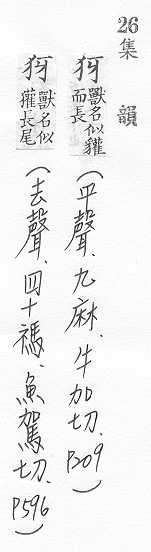 26集韻
犽獸名似貛而長(平聲、九麻、牛加切、P209)
犽獸名似貛長尾(去聲、四十禡、魚駕切、P596)